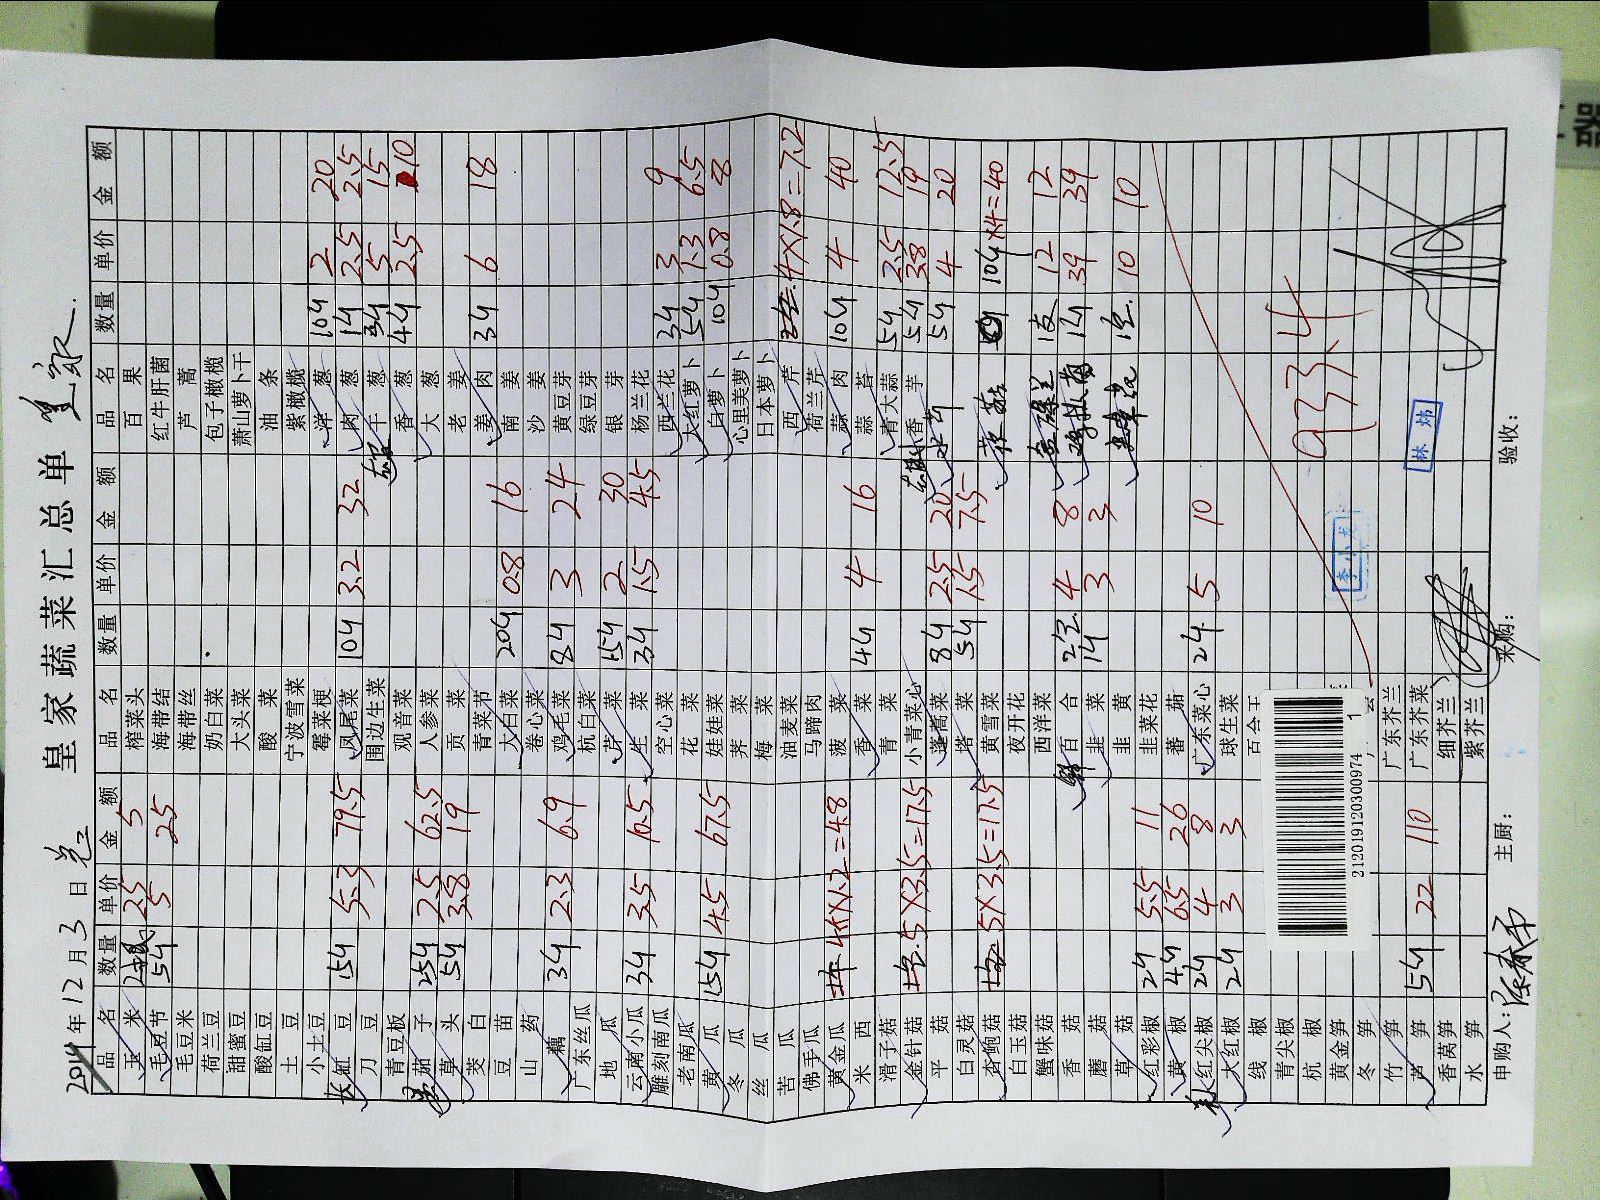 皇家蔬菜汇总单 皇家
2014年12月3日
品名 数量 单价 金额 品名 数量 单价 金额 品名 数量 单价 金额
玉米 2.5 5 榨菜头 百果
毛豆节 5斤 5 25 海带结 红牛肝菌
毛豆米 海带丝 芦蒿
荷兰豆 奶白菜 包子橄榄
甜蜜豆 大头菜 萧山萝卜干
酸缸豆 酸菜 油条
土豆 宁波雪菜 紫橄榄
小土豆 霉菜梗 洋葱 10斤 2 20
缸豆 15斤 5.3 79.5 凤尾菜 10斤 3.2 32 肉葱 1斤 2.5 2.5
刀豆 围边生菜 干葱 3斤 5 15
青豆板 观音菜 香葱 4斤 2.5 10
茄子 25斤 2.5 62.5 人参菜 大葱
草头 5斤 3.8 19 贡菜 老姜
茭白 青菜节 姜肉 3斤 6 18
豆苗 大白菜 20斤 0.8 16 南姜
山药 卷心菜 沙姜
藕 3斤 2.3 6.9 鸡毛菜 8斤 3 24 黄豆芽
广东丝瓜 杭白菜 绿豆芽
地瓜 芹菜 15斤 2 30 银芽
云南小瓜 3斤 3.5 10.5 生菜 3斤 1.5 4.5 杨兰花
雕刻南瓜 空心菜 西兰花 3斤 3 9
老南瓜 花菜 大红萝卜 5斤 1.3 6.5
黄瓜 15斤 4.5 67.5 娃娃菜 白萝卜 10斤 0.8 8
冬瓜 荠菜 心里美萝卜
丝瓜 梅菜 日本萝卜
苦瓜 油麦菜 西芹 4X1.8=7.2
佛手瓜 马蹄肉 荷兰芹
黄金瓜 4X1.2=4.8 菠菜 蒜肉 10斤 4 40
米西 香菜 4斤 4 16 蒜苔
滑子菇 青菜 青大蒜 5斤 2.5 12.5
金针菇 5X3.5=17.5 小青菜心 香芋 5斤 3.8 19
平菇 蓬蒿菜 8斤 2.5 20 5斤 4 20
白灵菇 塔菜 5斤 1.5 7.5
杏鲍菇 5X3.5=17.5 黄雪菜 10斤X4=40
白玉菇 夜开花
蟹味菇 西洋菜 1支 12 12
香菇 鲜百合 2包 4 8 1斤 39 39
蘑菇 韭菜 1斤 3 3
草菇 韭黄 1盒 10 10
红彩椒 2斤 5.5 11 韭菜花
黄椒 4斤 6.5 26 蕃茄
红尖椒 2斤 4 8 广东菜心 2斤 5 10
大红椒 2斤 3 3 球生菜
线椒
青尖椒
杭椒 933.4
黄金笋
冬笋 2120191203009741
竹笋 广东芥兰
芦笋 5斤 22 110 广东芥菜 林炜
香莴笋 细芥兰
水笋 紫芥兰
申购人: 主厨: 采购: 验收: